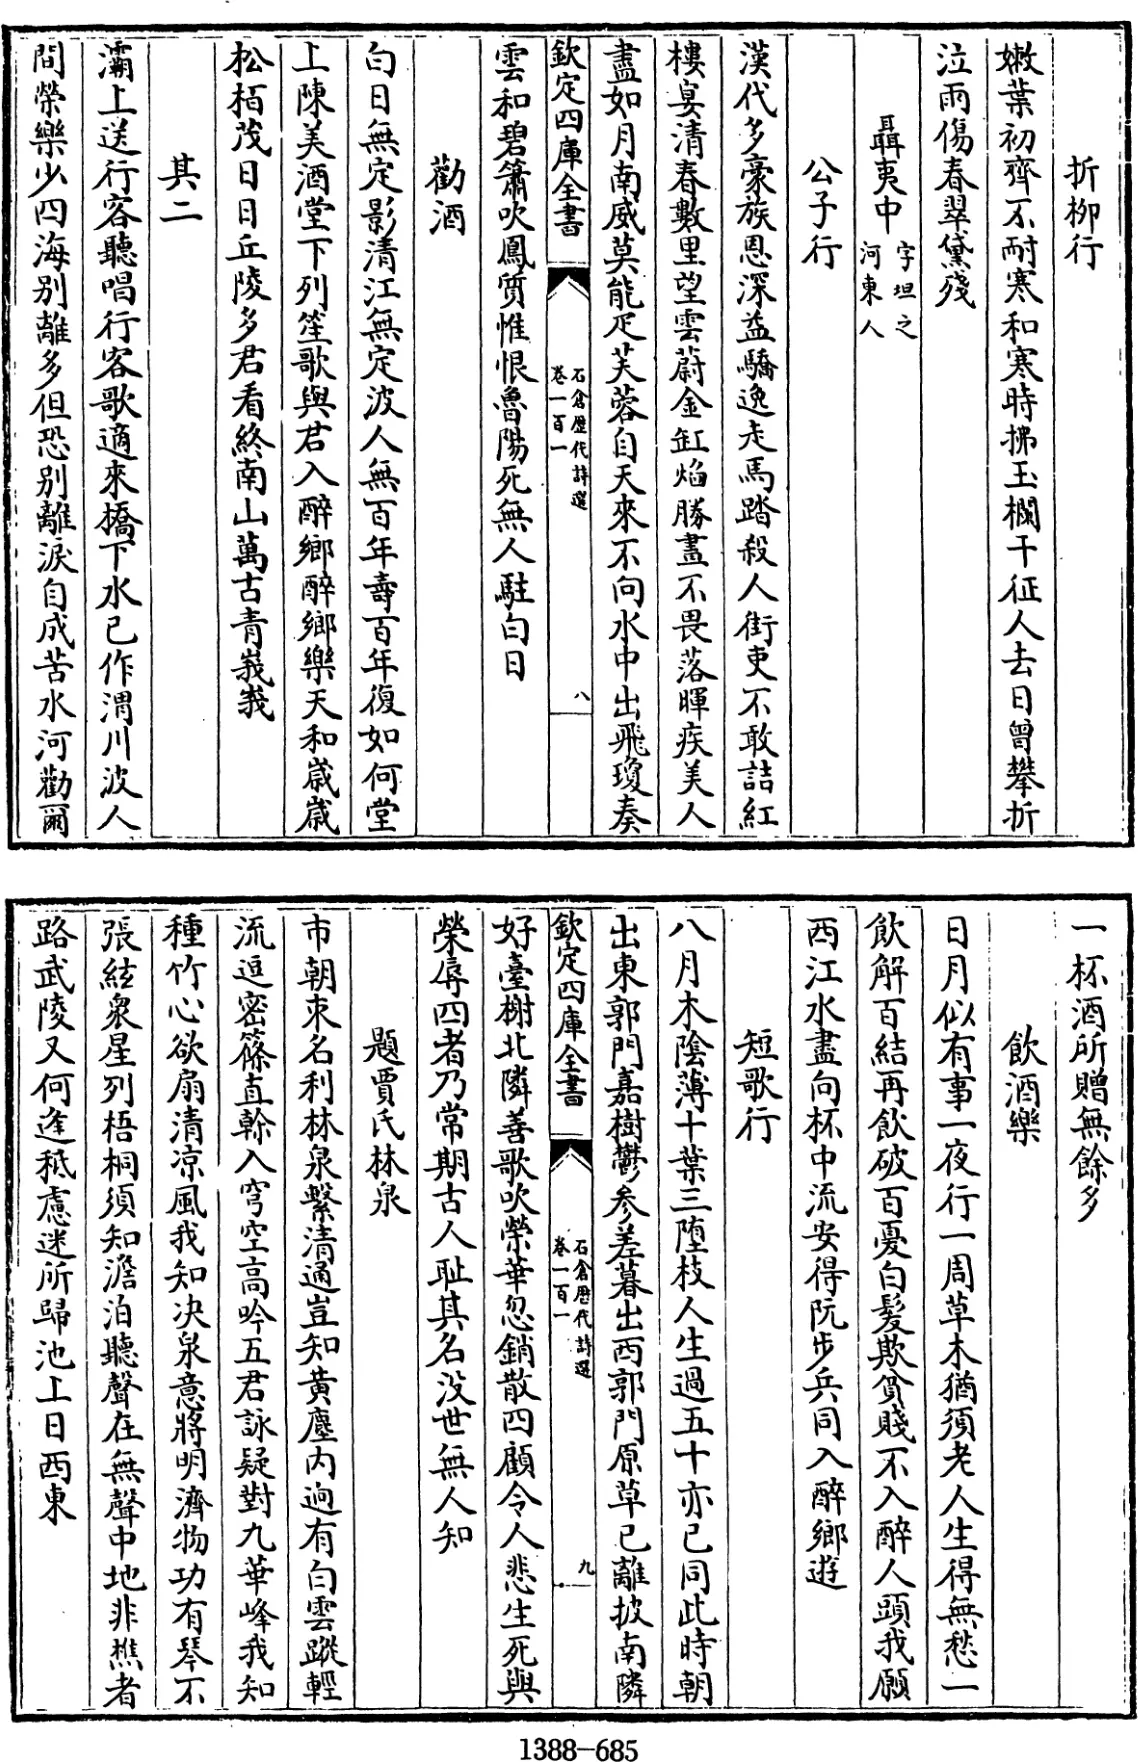 折柳行
嫩葉初齊不耐寒和寒時拂玉欄干征人去日曾攀折
泣雨傷春翠黛殘
聶夷中字坦之河東人
公子行
漢代多豪族恩深益驕逸走馬踏殺人街吏不敢詰紅
樓宴清春數里望雲蔚金缸焰勝晝不畏落暉疾美人
盡如月南威莫能疋芙蓉自天來不向水中出飛瓊奏
欽定四庫全書
石倉歷代詩選
卷一百一
八
雲和碧簫吹鳳質惟恨魯陽死無人駐白日
勸酒
白日無定影清江無定波人無百年壽百年復如何堂
上陳美酒堂下列笙歌與君入醉鄉醉鄉樂天和歲歲
松栢茂日日丘陵多君看終南山萬古青峩峩
其二
灞上送行客聽唱行客歌適來橋下水已作渭川波人
間榮樂少四海别離多但恐别離淚自成苦水河勸爾
一杯酒所贈無餘多
飲酒樂
日月似有事一夜行一周草木猶須老人生得無愁一
飲解百結再飲破百憂白髮欺貧賤不入醉人頭我願
西江水盡向杯中流安得阮步兵同入醉鄉遊
短歌行
八月木陰薄十葉三墮枝人生過五十亦已同此時朝
出東郭門嘉樹鬱參差暮出西郭門原草已離披南隣
欽定四庫全書
石倉歷代詩選
卷一百一
九
好臺榭北隣善歌吹榮華忽銷散四顧令人悲生死與
榮辱四者乃常期古人耻其名没世無人知
題賈氏林泉
市朝束名利林泉繫清通豈知黄塵内迥有白雲蹤輕
流逗密篠直榦入穹空高吟五君詠疑對九華峰我知
種竹心欲扇清凉風我知决泉意將明濟物功有琴不
張絃衆星列梧桐須知澹泊聽聲在無聲中地非樵者
路武陵又何逢秪慮迷所歸池上日西東
1388-685